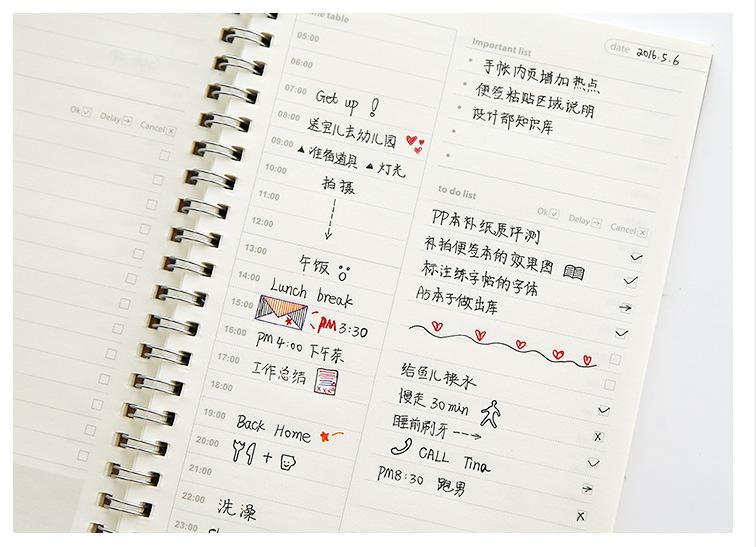 Ok Delay Cancel
time table
05:00
06:00
07:00
Get up !
08:00
送宝儿去幼儿园
09:00
▲准备道具 ▲灯光
10:00
拍摄
11:00
12:00
13:00
午饭
14:00
Lunch break
15:00
PM 3:30
16:00
PM 4:00 下午茶
17:00
工作总结
18:00
19:00
Back Home
20:00
+
21:00
22:00
洗澡
23:00
date 2016.5.6
Important list
手帐内页增加热点
便签粘贴区域说明
设计部知识库
to do list
Ok Delay Cancel
PP本补纸质评测
补拍便签本的效果图
标注练字帖的字体
A5本子做出库
给鱼儿换水
慢走 30 min
睡前刷牙
CALL Tina
PM8:30 跑男